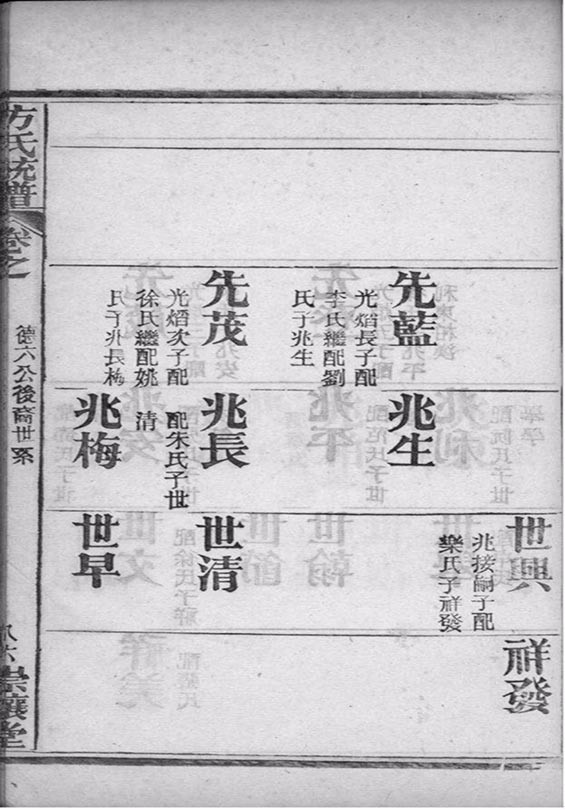 先藍
光熖長子配
李氏繼配劉
氏子兆生
先茂
光熖次子配
徐氏繼配姚
氏子兆長梅
兆生
兆長
配朱氏子世
清
兆梅
世興
兆接嗣子配
樂氏子祥發
世清
世早
祥發
方氏統譜
卷之
德六公後裔世系
崇讓堂